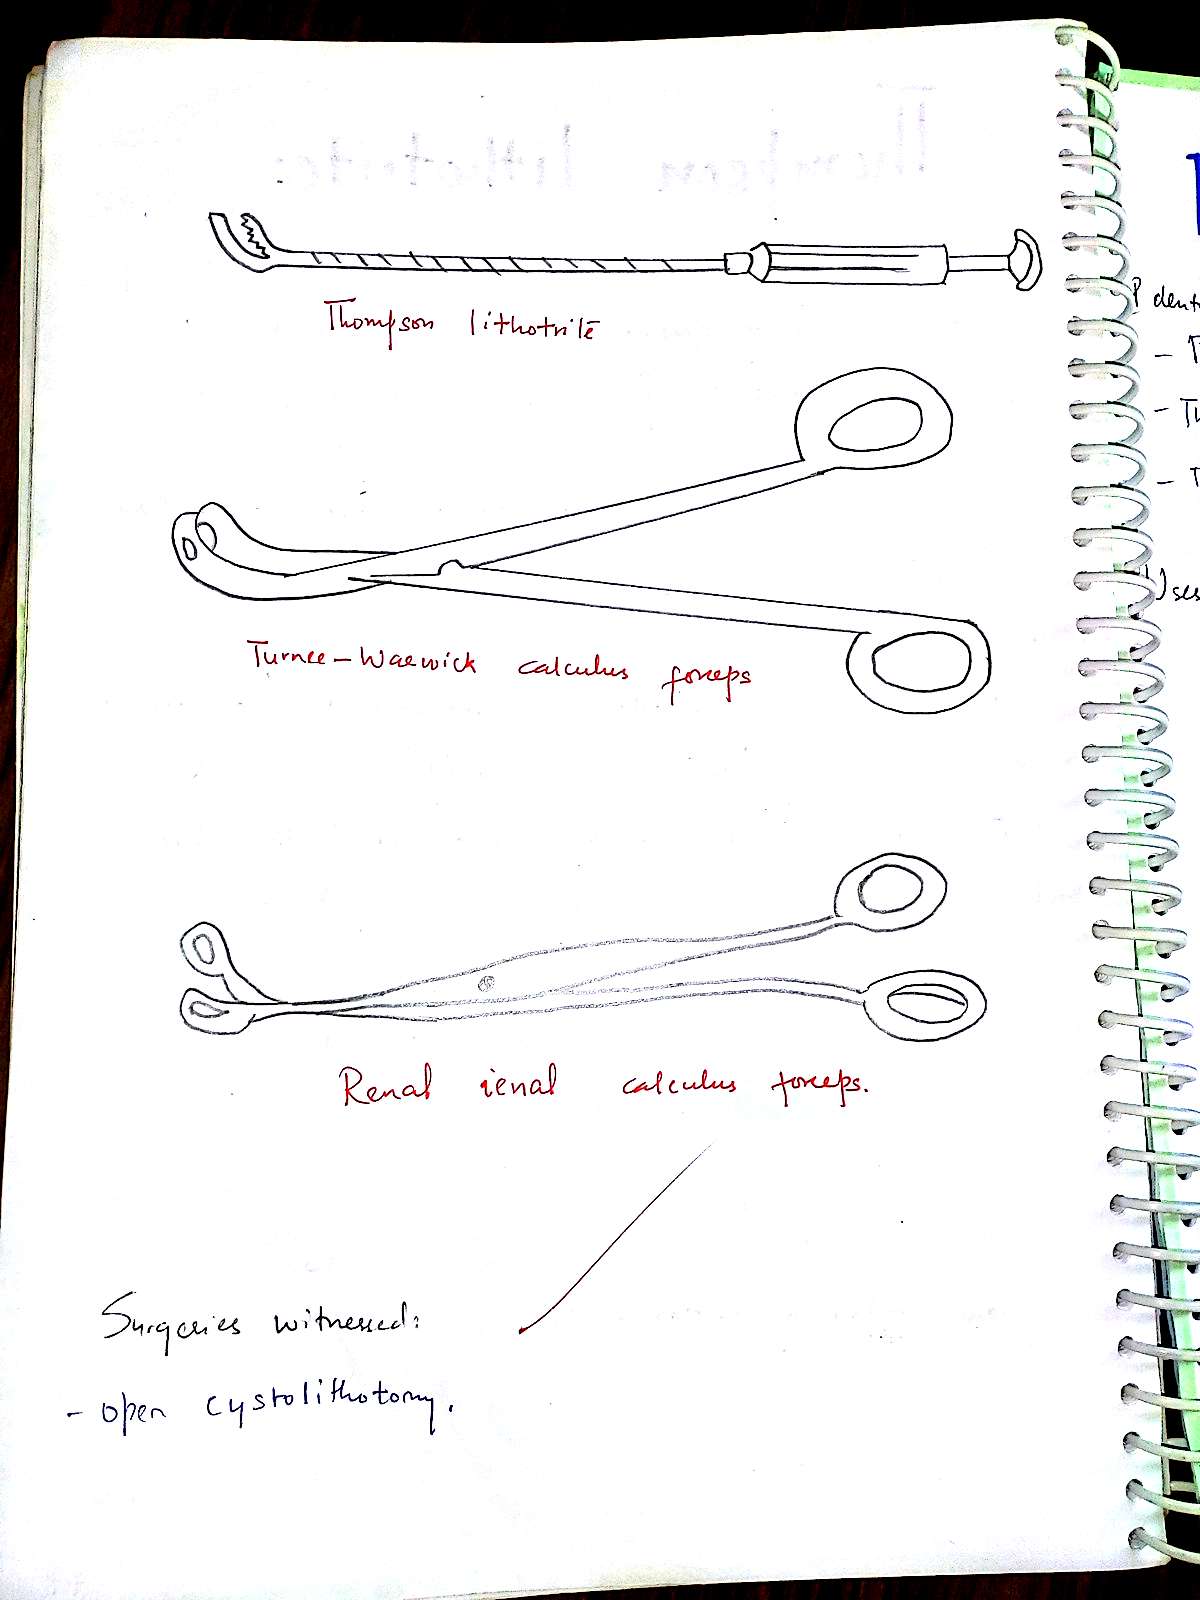 Thompson lithotrite
Turner-Warwick calculus forceps
Renal renal calculus forceps.
Surgeries witnessed:
- open cystolithotomy.
dent
- T
- Tu
- T
Uses